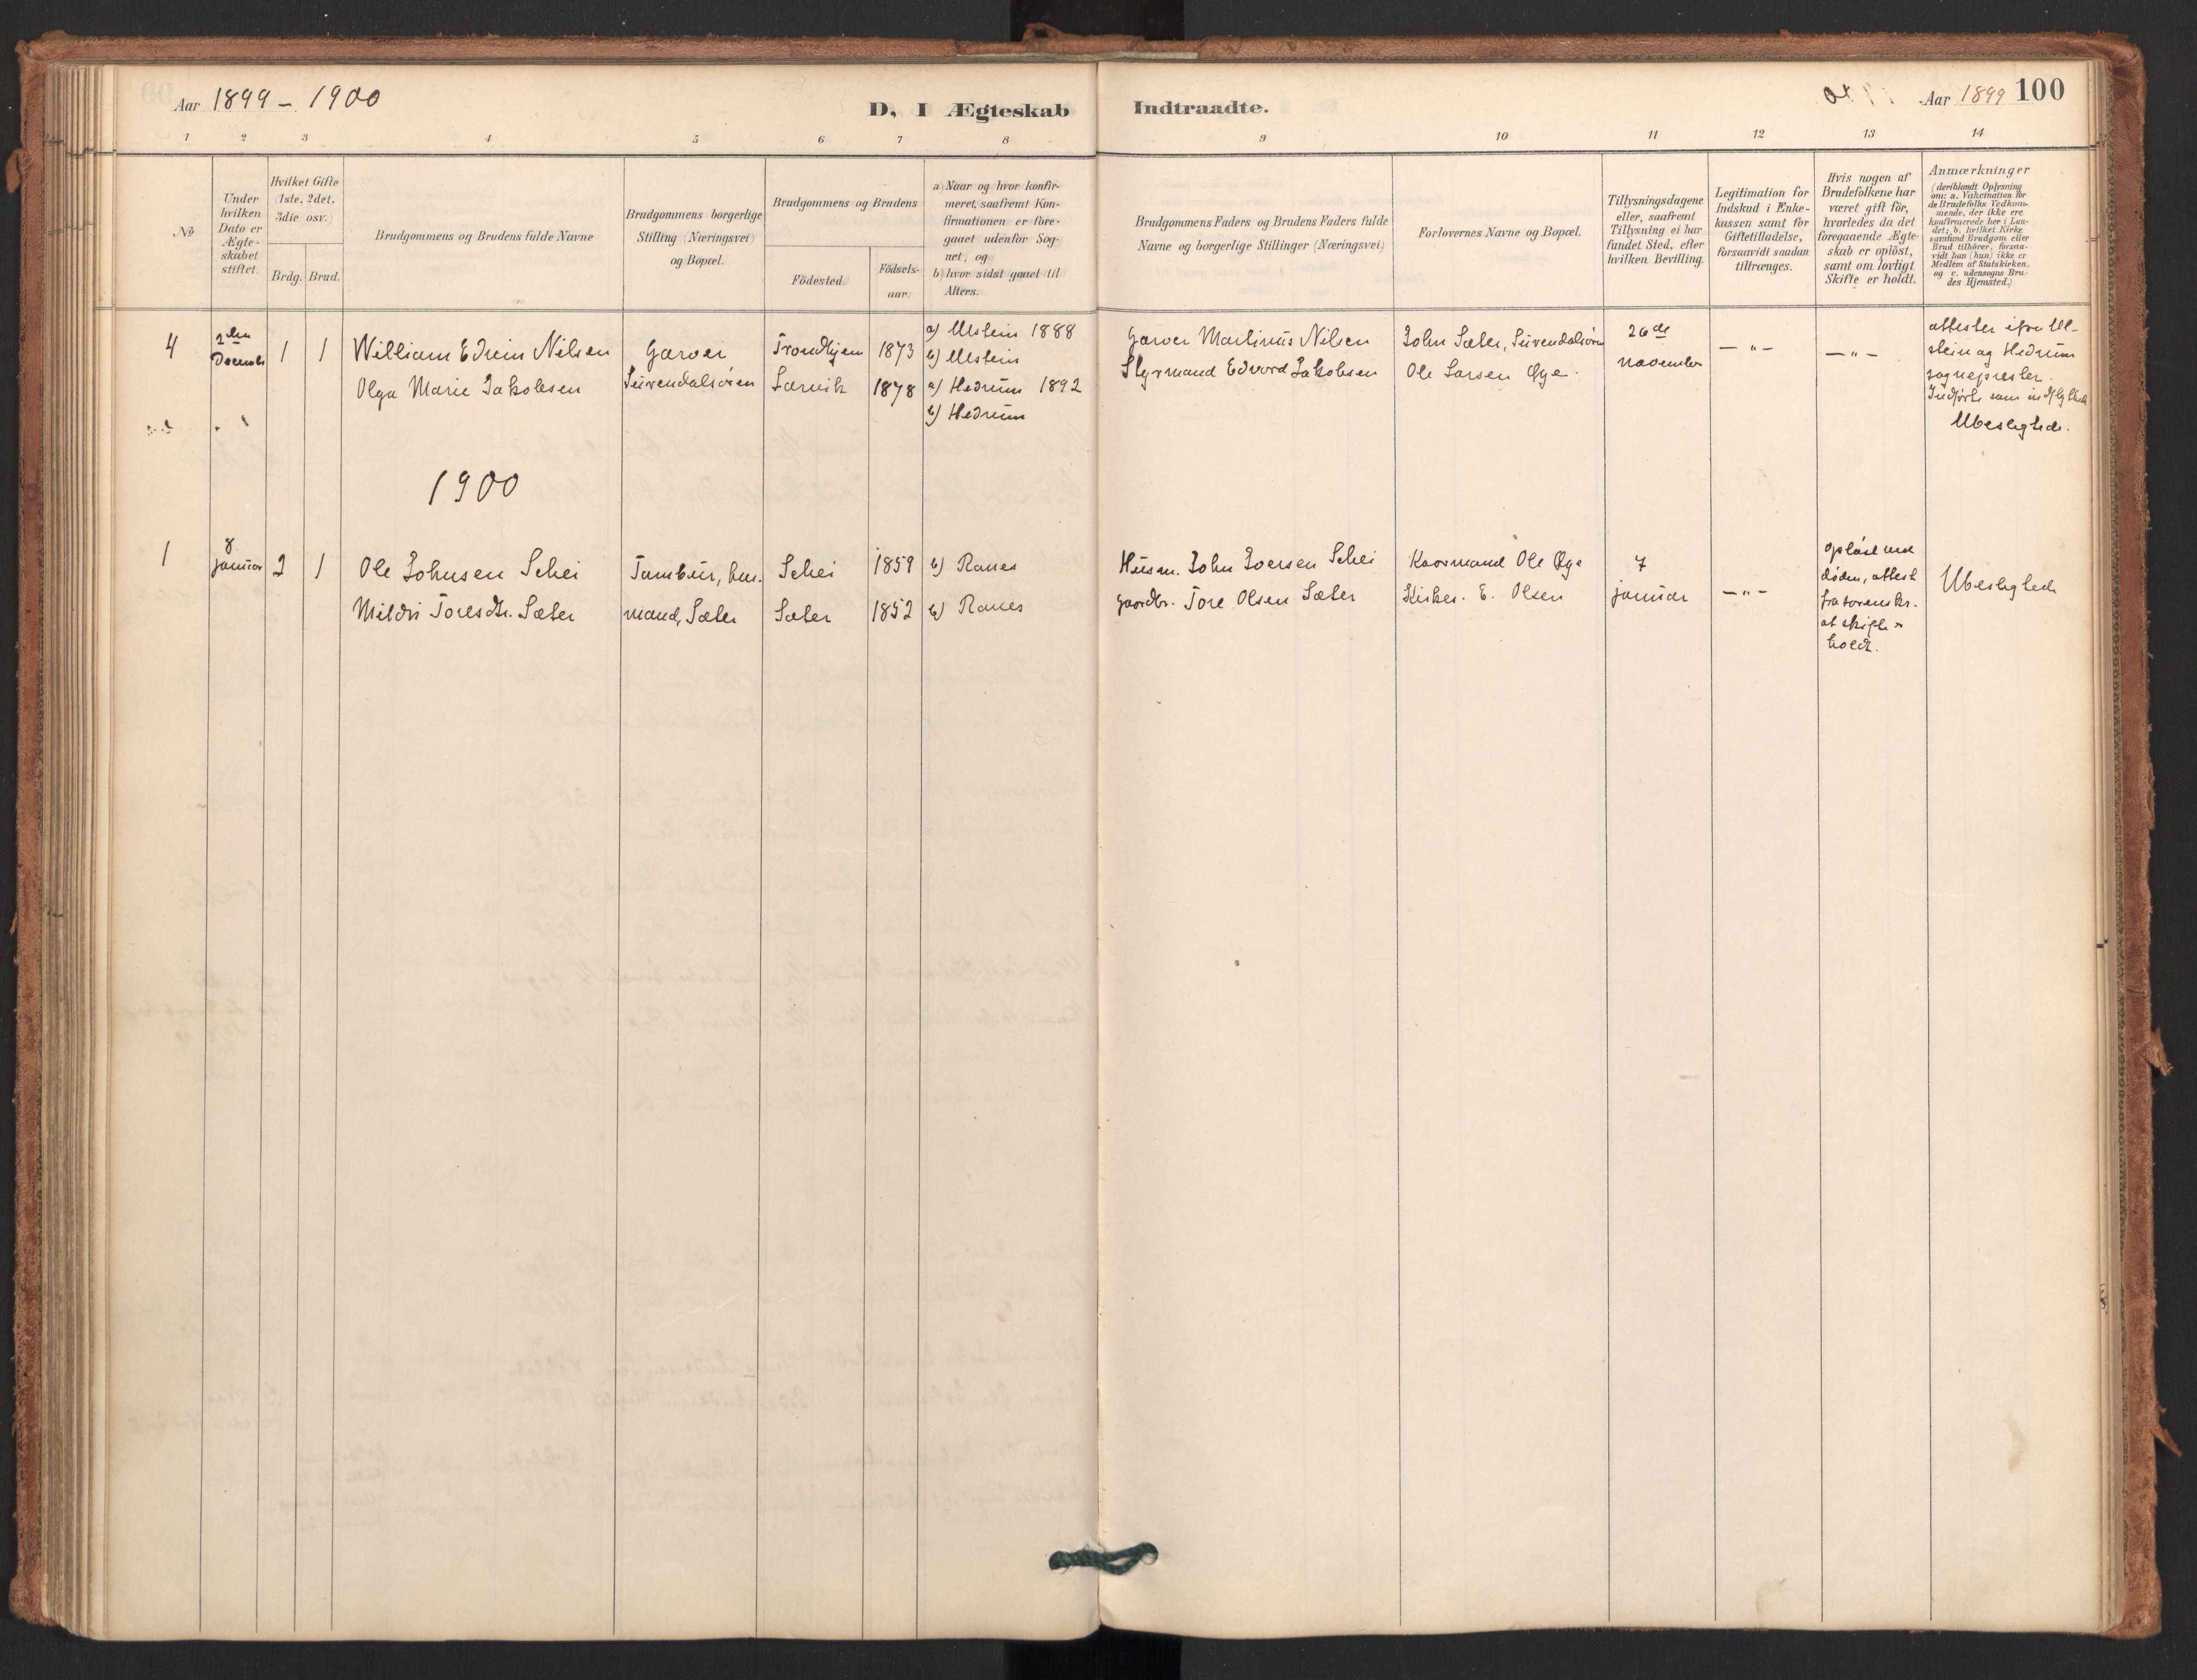 Aar 1899 – 1900
D, I Ægteskab Indtraadte.
Aar 1899 100
1 2 3 4 5 6 7 8 9 10 11 12 13 14
No
Under
hvilken
Dato er
Ægte-
skabet
stiftet.
Hvilket Gifte
(1ste, 2det,
3die osv.)
Brdg. Brud.
Brudgommens og Brudens fulde Navne
Brudgommens borgerlige
Stilling (Næringsvei)
og Bopæl.
Brudgommens og Brudens
Födested.
Födsels-
aar.
a) Naar og hvor konfir-
meret, saafremt Kon-
firmationen er fore-
gaaet udenfor Sog-
net, og
b) hvor sidst gaaet til
Alters.
Brudgommens Faders og Brudens Faders fulde
Navne og borgerlige Stillinger (Næringsvei)
Forlovernes Navne og Bopæl.
Tillysningsdagene
eller, saafremt
Tillysning ei har
fundet Sted, efter
hvilken Bevilling.
Legitimation for
Indskud i Enke-
kassen samt for
Giftetilladelse,
forsaavidt saadan
tiltrænges.
Hvis nogen af
Brudefolkene har
været gift för,
hvorledes da det
foregaaende Ægte-
skab er oplöst,
samt om lovligt
Skifte er holdt.
Anmærkninger
(deriblandt Oplysning
om: a. Vakcination for
de Brudefolks Vedkom-
mende, der ikke ere
konfirmerede her i Lan-
det; b. hvilket Kirke
samfund Brudgom eller
Brud tilhörer, forsaa-
vidt han (hun) ikke er
Medlem af Statskirken,
og c. udensogns Bru-
des Hjemsted.)
4
2den
Decemb
1 1
William Edvin Nilsen
Olga Marie Jakobsen
Garver
Surendalsören
Trondhjem 1873
Larvik 1878
a) Ulstein 1888
b) Ulstein
a) Hedrum 1892
b) Hedrum
Garver Martinus Nilsen
Styrmand Edvard Jakobsen
John Sæter, Surendalsören
Ole Larsen Øye.
26de
november
– " –
– " –
attester ifra Ul-
stein og Hedrum
sogneprester.
Indförte som indflyttede
Ubeslegtede.
1900
1
8
januar
2 1
Ole Johnsen Schei
Mildri Toresdtr. Sæter
Tambur, hus-
mand, Sæter
Schei 1859
Sæter 1852
b) Ranes
b) Ranes
Husm. John Iversen Schei
Gaardbr. Tore Olsen Sæter
Kaarmand Ole Øye
Kirkes. E. Olsen
7
januar
– " –
opløst ved
døden, attest
fra sorenskr.
at skifte er
holdt.
Ubeslegtede